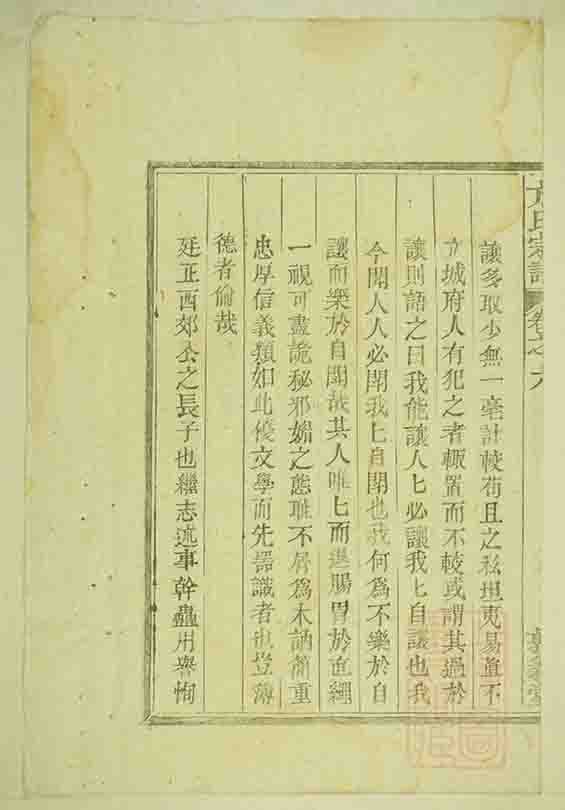 氏宗譜 卷之六
讓多取少無一毫計較苟且之私坦夷易直不
立城府人有犯之者輒置而不較或謂其過於
讓則語之曰我能讓人匕必讓我匕自讓也我
今閉人人必閉我匕自閉也我何為不樂於自
讓而樂於自閉哉其人唯匕而退腸胃於直繩
一視可盡詭秘邪媚之態雖不屑為木訥簡重
忠厚信義類如此優文學而先器識者也豈薄
德者倫哉
廷正西郊公之長子也繼志述事幹蠱用譽恂